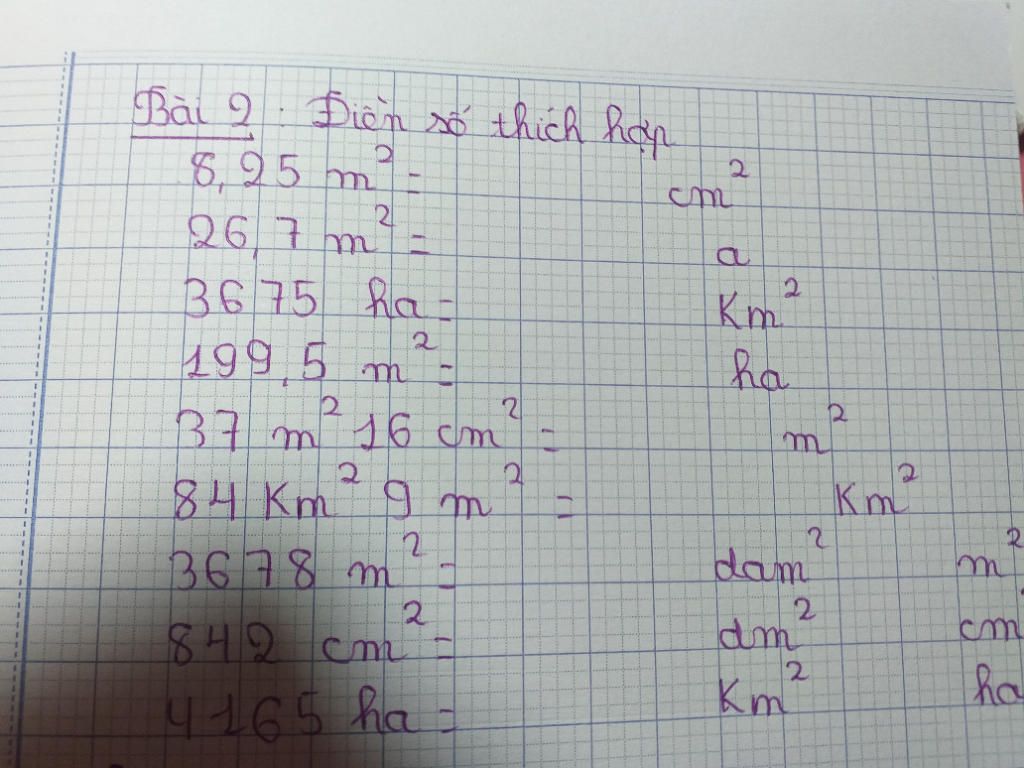 Bài 2: Điền số thích hợp
8,25 m² = cm²
26,7 m² = a
3675 ha = Km²
199,5 m² = ha
37 m² 16 cm² = m²
84 Km² 9 m² = Km²
3678 m² = dam² m²
842 cm² = dm² cm²
4165 ha = Km² ha